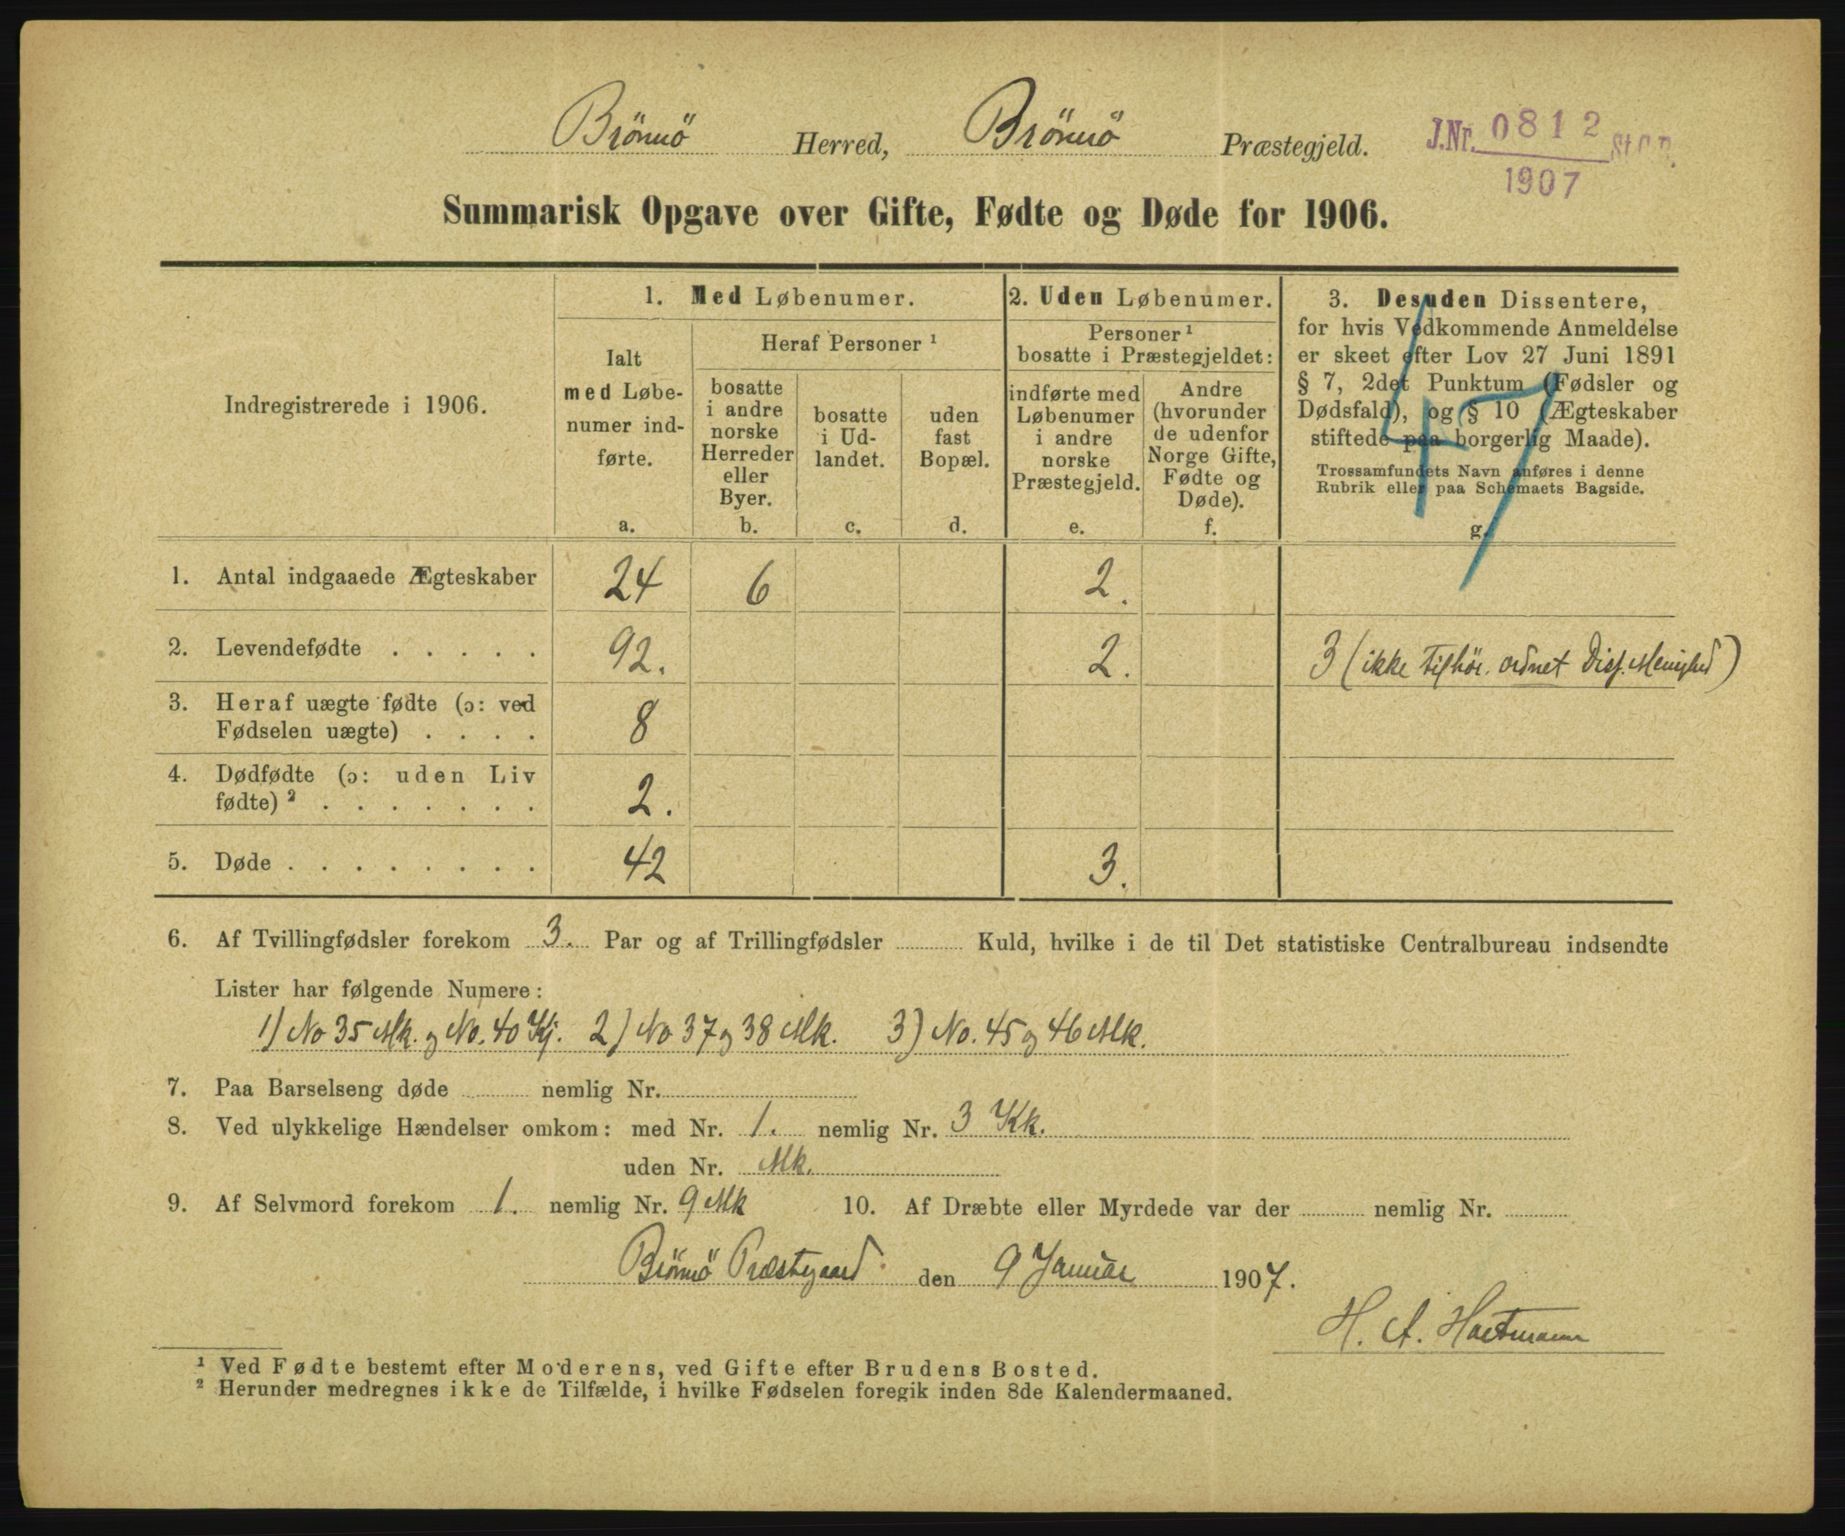 Brönnö Herred, Brönnö Præstegjeld.
J.Nr. 0812 St.C.B.
1907
Summarisk Opgave over Gifte, Fødte og Døde for 1906.
Indregistrerede i 1906.
1. Med Løbenumer.
Ialt
med Løbe-
numer ind-
førte.
a.
Heraf Personer ¹
bosatte
i andre
norske
Herreder
eller
Byer.
b.
bosatte
i Ud-
landet.
c.
uden
fast
Bopæl.
d.
2. Uden Løbenumer.
Personer ¹
bosatte i Præstegjeldet:
indførte med
Løbenumer
i andre
norske
Præstegjeld.
e.
Andre
(hvorunder
de udenfor
Norge Gifte,
Fødte og
Døde).
f.
3. Desuden Dissentere,
for hvis Vedkommende Anmeldelse
er skeet efter Lov 27 Juni 1891
§ 7, 2det Punktum (Fødsler og
Dødsfald), og § 10 (Ægteskaber
stiftede paa borgerlig Maade).
Trossamfundets Navn anføres i denne
Rubrik eller paa Schemaets Bagside.
g.
47
1. Antal indgaaede Ægteskaber 24 6 2.
2. Levendefødte . . . . . 92. 2. 3 (ikke Tilhör. ordnet Diss. Menighed)
3. Heraf uægte fødte (ɔ: ved
Fødselen uægte) . . . . 8
4. Dødfødte (ɔ: uden Liv
fødte) ² . . . . . . . 2.
5. Døde . . . . . . . . 42 3.
6. Af Tvillingfødsler forekom 3. Par og af Trillingfødsler Kuld, hvilke i de til Det statistiske Centralbureau indsendte
Lister har følgende Numere:
1) No 35 Mk. og No. 40 Kj. 2) No 37 og 38 Mk. 3) No. 45 og 46 Mk.
7. Paa Barselseng døde nemlig Nr.
8. Ved ulykkelige Hændelser omkom: med Nr. 1. nemlig Nr. 3 Kk.
uden Nr. Mk.
9. Af Selvmord forekom 1. nemlig Nr. 9 Mk 10. Af Dræbte eller Myrdede var der nemlig Nr.
Brönnö Præstegaard den 9 Januar 1907.
H. A. Hartmann
¹ Ved Fødte bestemt efter Moderens, ved Gifte efter Brudens Bosted.
² Herunder medregnes ikke de Tilfælde, i hvilke Fødselen foregik inden 8de Kalendermaaned.